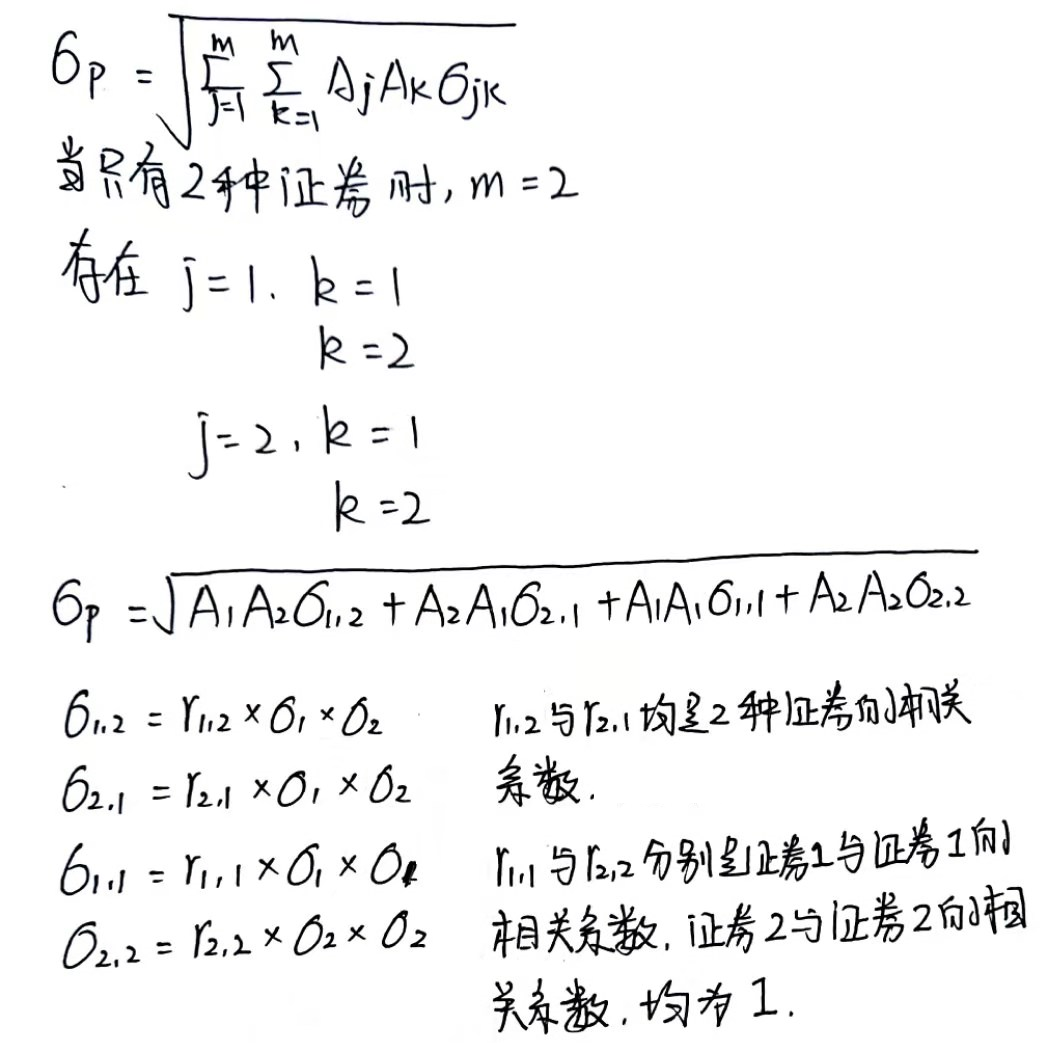 σp = √(∑_{j=1}^{m} ∑_{k=1}^{m} AjAkσjk)
当只有2种证券时, m = 2
存在 j = 1. k = 1
k = 2
j = 2, k = 1
k = 2
σp = √(A₁A₂σ₁,₂ + A₂A₁σ₂,₁ + A₁A₁σ₁,₁ + A₂A₂σ₂,₂)
σ₁,₂ = r₁,₂ × σ₁ × σ₂
σ₂,₁ = r₂,₁ × σ₁ × σ₂
σ₁,₁ = r₁,₁ × σ₁ × σ₁
σ₂,₂ = r₂,₂ × σ₂ × σ₂
r₁,₂与r₂,₁均是2种证券的相关
系数.
r₁,₁与r₂,₂分别是证券1与证券1的
相关系数, 证券2与证券2的相
关系数, 均为1.